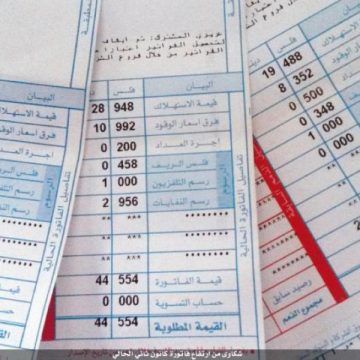 عزيزي المشترك: تم ايقاف
لتحصيل الفواتير اعتبارا
الفواتير من خلال فروع
البيان فلس
قيمة الاستهلاك 948 28
فرق اسعار الوقود 992 10
اجرة العداد 200 0
فلس الريف 458 0
رسم التلفزيون 000 1
رسم النفايات 956 2
الرسوم
تفاصيل الفاتورة الحالية
قيمة الفاتورة 554 44
حساب التسوية 000 0
القيمة المطلوبة 554 44
فلس دينار
488 19
352 8
200 0
348 0
000 1
0
0
البيان
قيمة الاستهلاك
فرق اسعار الوقود
اجرة العداد
فلس الريف
رسم التلفزيون
رسم النفايات
تفاصيل الفاتورة الحالية
قيمة الفاتورة
حساب التسوية
القيمة المطلوبة
رصيد سابق
مجموع الذمم
شكاوى من ارتفاع فاتورة كانون ثاني الحالي